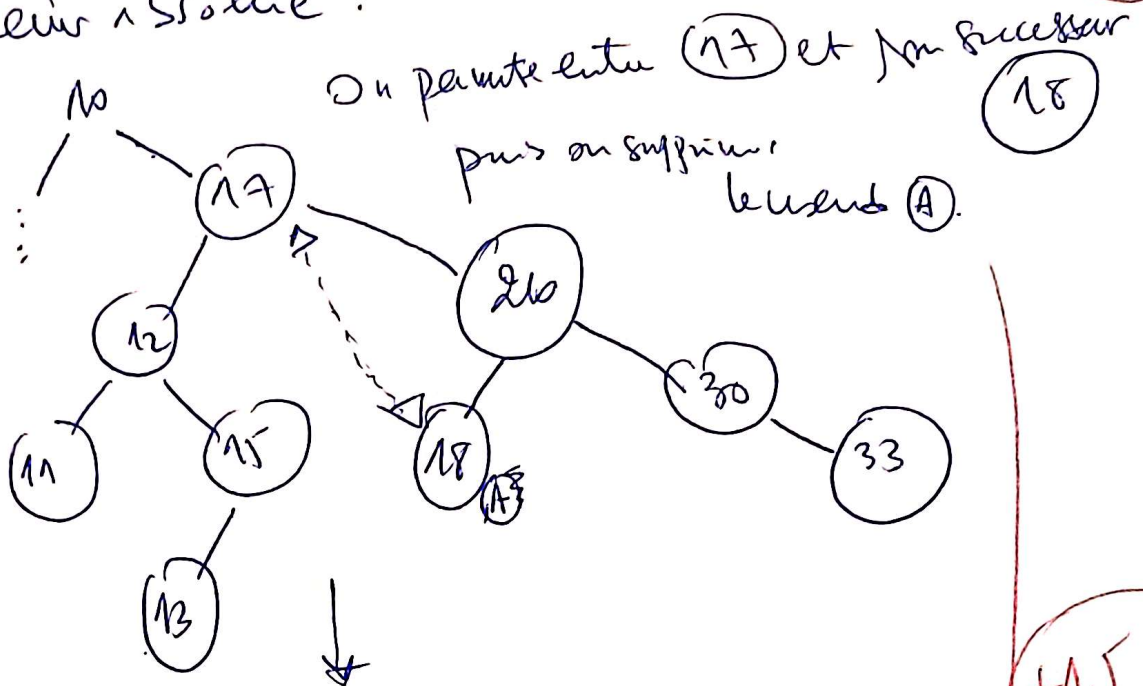 On permute entre 17 et son successeur
18
puis on supprime
le noeud A.
10
17
26
12
30
11
15
18
A
33
13